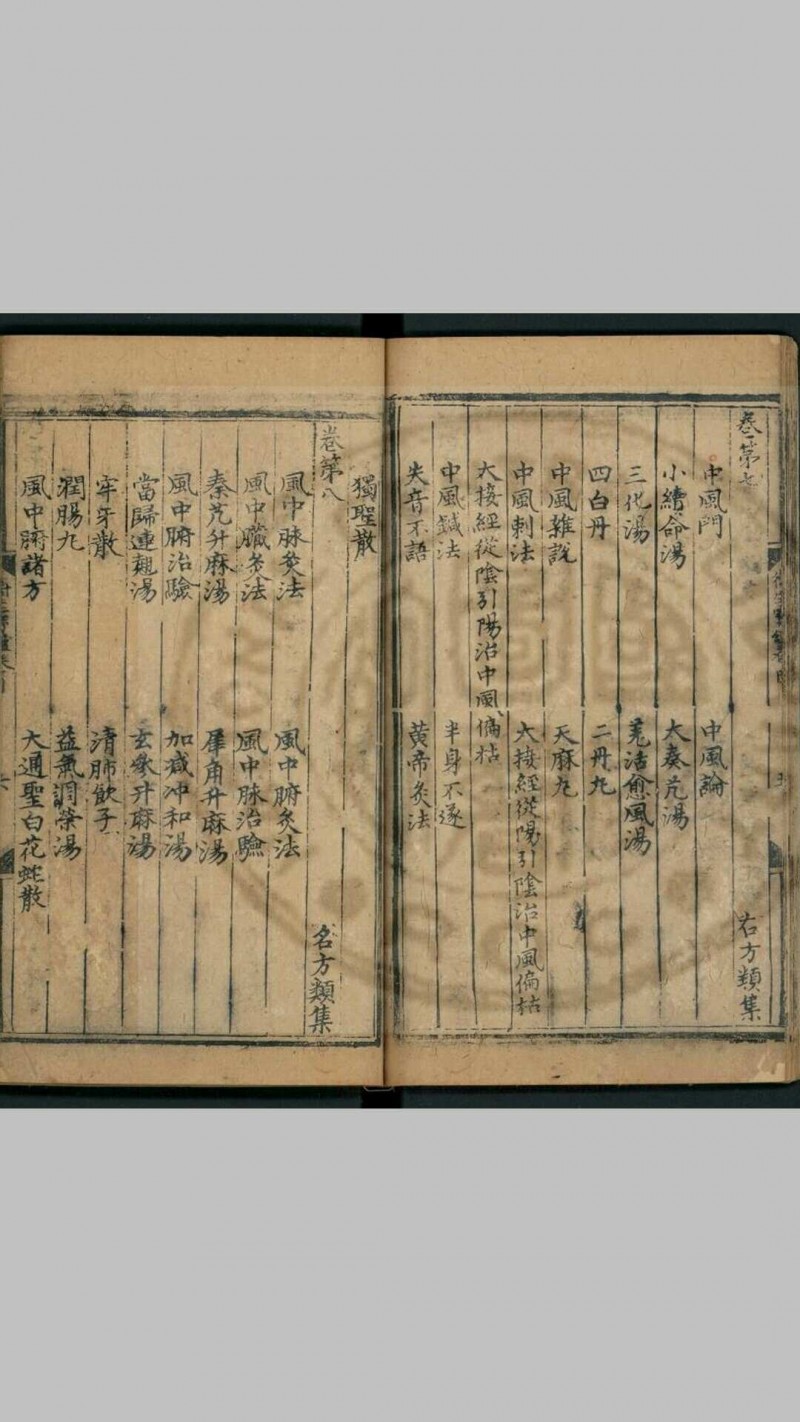 卷第七 名方類集
中風門 中風論
小續命湯 大秦艽湯
三化湯 羗活愈風湯
四白丹 二丹丸
中風雜說 天麻丸
中風刺法 大接經從陽引陰治中風偏枯
大接經從陰引陽治中風偏枯
中風鍼法 半身不遂
失音不語 黃帝灸法
獨聖散
卷第八 名方類集
風中脉灸法 風中腑灸法
風中臟灸法 風中脉治驗
秦艽升麻湯 犀角升麻湯
風中腑治驗 加减冲和湯
當歸連翹湯 玄參升麻湯
牢牙散 清肺飲子
潤腸丸 益氣調榮湯
風中腑諸方 大通聖白花蛇散